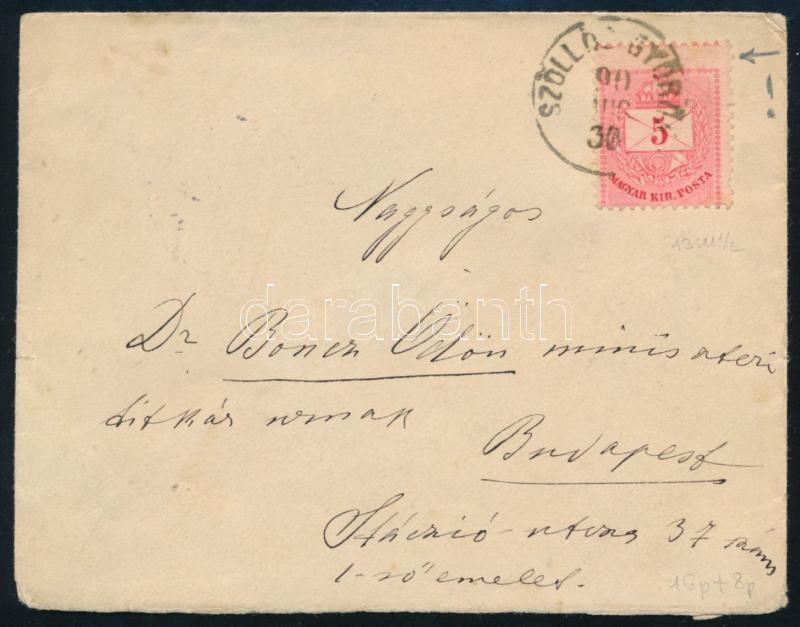 SZŐLLŐS-GYÖRÖK
90
AUG
30
5
MAGYAR KIR. POSTA
12:11 1/2
Nagyságos
darabanth
Dr Boncz Ödön ministeri
titkár urnak
Budapest
Stáczió-utcza 37 szám
1-ső emelet.
15p+8p